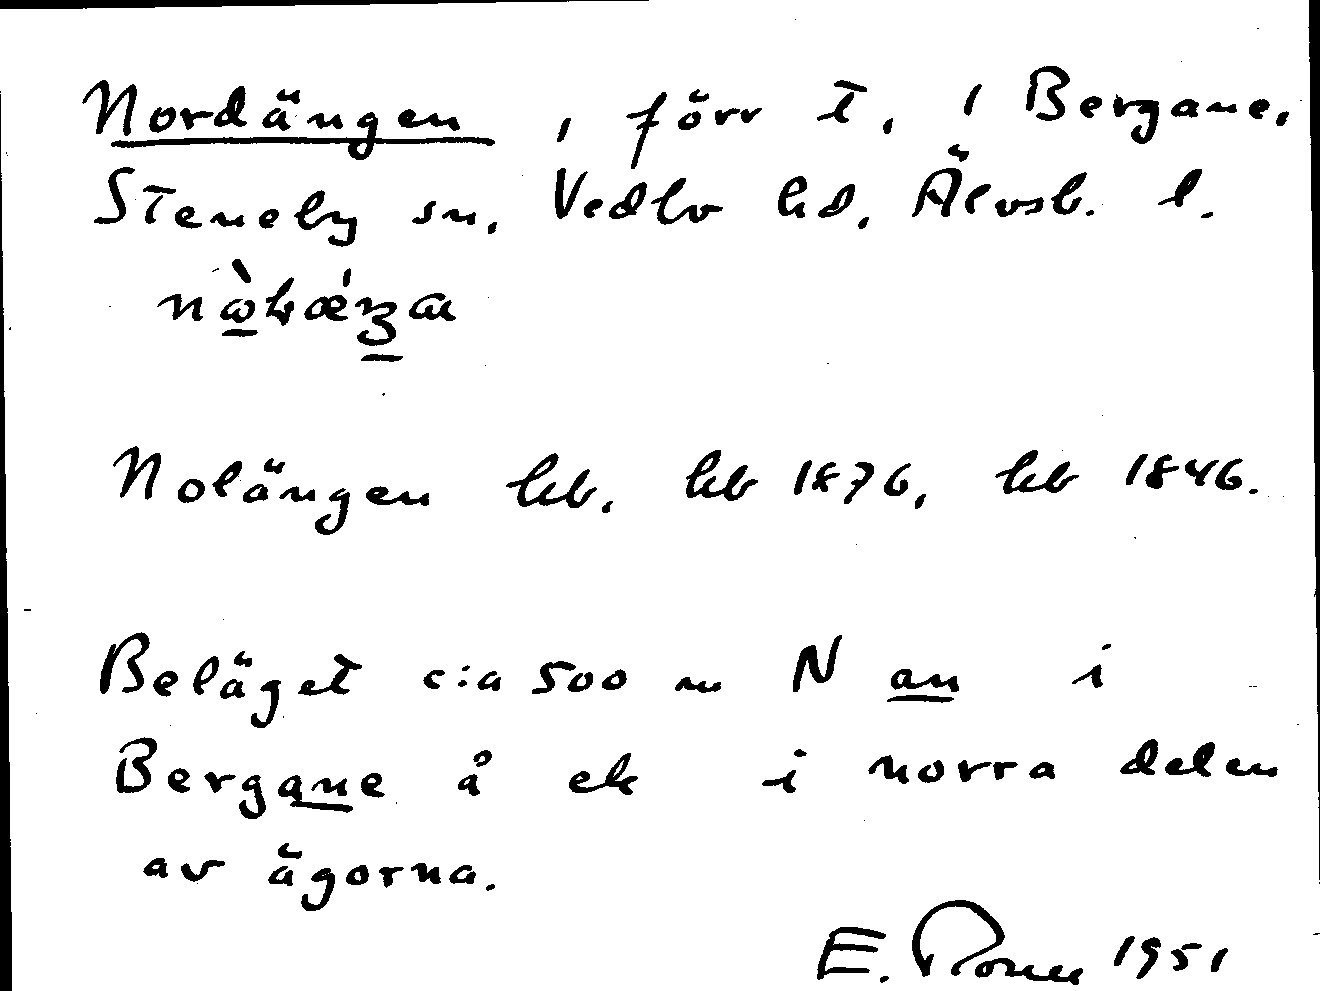 Nordängen, förr t. i Bergane,
Steneby sn, Vedbo hd, Älvsb. l.
Nolängen kb, kb 1876, kb 1846.
Beläget c:a 500 m N an i
Bergane å ek i norra delen
av ägorna.
E. 1951